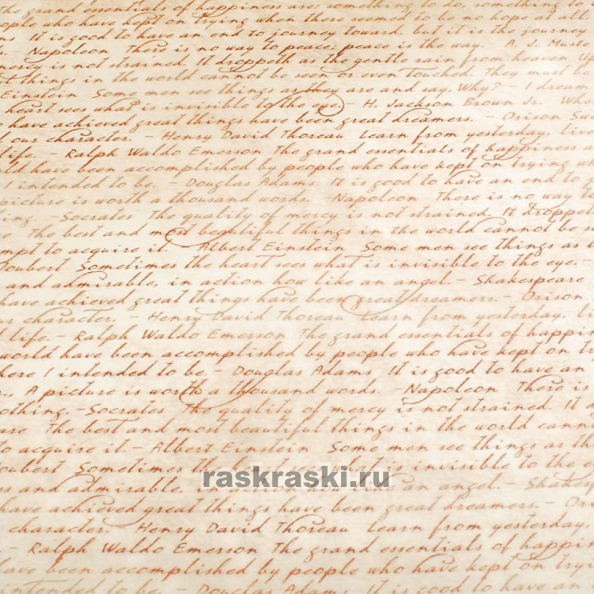 The grand essentials of happiness are: something to do, something to
people who have kept on trying when there seemed to be no hope at all
It is good to have an end to journey toward, but it is the journey
- Napoleon There is no way to peace; peace is the way. A. J. Muste
mercy is not strained. It droppeth as the gentle rain from heaven up
things in the world cannot be seen or even touched. They must be
Einstein Some men see things as they are and say, Why? - I dream
heart sees what is invisible to the eye. - H. Jackson Brown Jr. Whe
have achieved great things have been great dreamers. - Orison Swe
our character. - Henry David Thoreau Learn from yesterday, live
life. - Ralph Waldo Emerson The grand essentials of happiness a
ld have been accomplished by people who have kept on trying wh
I intended to be. - Douglas Adams It is good to have an end to
picture is worth a thousand words. -Napoleon There is no way t
ing. -Socrates The quality of mercy is not strained. It droppet
The best and most beautiful things in the world cannot be s
mpt to acquire it. Albert Einstein Some men see things as t
Joubert Sometimes the heart sees what is invisible to the eye.-
and admirable, in action how like an angel. - Shakespeare
have achieved great things have been great dreamers. - Orison
character. - Henry David Thoreau Learn from yesterday, li
life. - Ralph Waldo Emerson The grand essentials of happin
world have been accomplished by people who have kept on try
here I intended to be. - Douglas Adams It is good to have an
A picture is worth a thousand words. -Napoleon There is
othing. -Socrates The quality of mercy is not strained. It d
are The best and most beautiful things in the world cann
to acquire it. - Albert Einstein Some men see things as th
oubert Sometimes the heart sees what is invisible to the ey
raskraski.ru
s and admirable, in action how like an angel. - Shakesp
have achieved great things have been great dreamers. - Oris
character. Henry David Thoreau Learn from yesterday,
- Ralph Waldo Emerson The grand essentials of happi
been accomplished by people who have kept on tryi
intended to be. - Douglas Adams It is good to have a